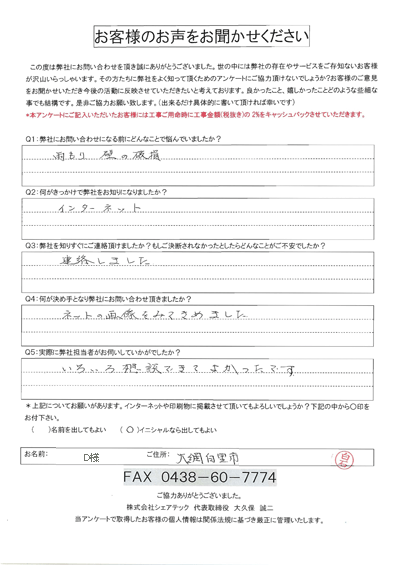 お客様のお声をお聞かせください
この度は弊社にお問い合わせを頂き誠にありがとうございました。世の中には弊社の存在やサービスをご存知ないお客様
が沢山いらっしゃいます。その方たちに弊社をよく知って頂くためのアンケートにご協力頂けないでしょうか?お客様のご意見
をお聞かせいただき今後の活動に反映させていただきたいと考えております。良かったこと、嬉しかったことどのような些細な
事でも結構です。是非ご協力お願い致します。(出来るだけ具体的に書いて頂ければ幸いです)
*本アンケートにご記入いただいたお客様には工事ご用命時に工事金額(税抜き)の2%をキャッシュバックさせていただきます。
Q1:弊社にお問い合わせになる前にどんなことで悩んでいましたか?
雨もり 壁の破損
Q2:何がきっかけで弊社をお知りになりましたか?
インターネット
Q3:弊社を知りすぐにご連絡頂けましたか?もしご決断されなかったとしたらどんなことがご不安でしたか?
連絡しました
Q4:何が決め手となり弊社にお問い合わせ頂きましたか?
ネットの画像をみてきめました
Q5:実際に弊社担当者がお伺いしていかがでしたか?
いろいろ相談できてよかったです
*上記についてお願いがあります。インターネットや印刷物に掲載させて頂いてもよろしいでしょうか?下記の中から〇印を
お付下さい。
( )名前を出してもよい (〇)イニシャルなら出してもよい
お名前: D様 ご住所: 大網白里市
FAX 0438-60-7774
ご協力ありがとうございました。
株式会社シェアテック 代表取締役 大久保 誠二
当アンケートで取得したお客様の個人情報は関係法規に基づき厳正に管理いたします。